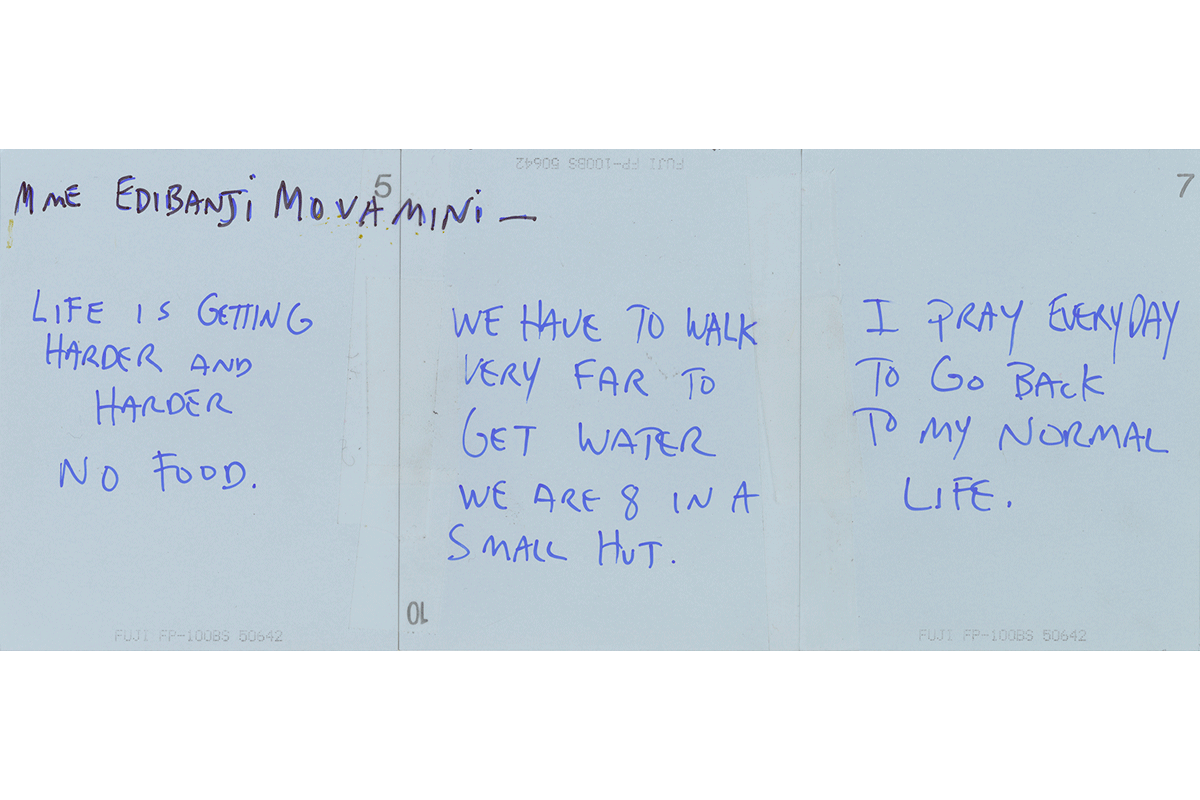 MME EDIBANJI MOVAMINI —
5
LIFE IS GETTING
HARDER AND
HARDER
NO FOOD.
FUJI FP-100BS 50642
FUJI FP-100BS 50642
WE HAVE TO WALK
VERY FAR TO
GET WATER
WE ARE 8 IN A
SMALL HUT.
10
7
I PRAY EVERYDAY
TO GO BACK
TO MY NORMAL
LIFE.
FUJI FP-100BS 50642